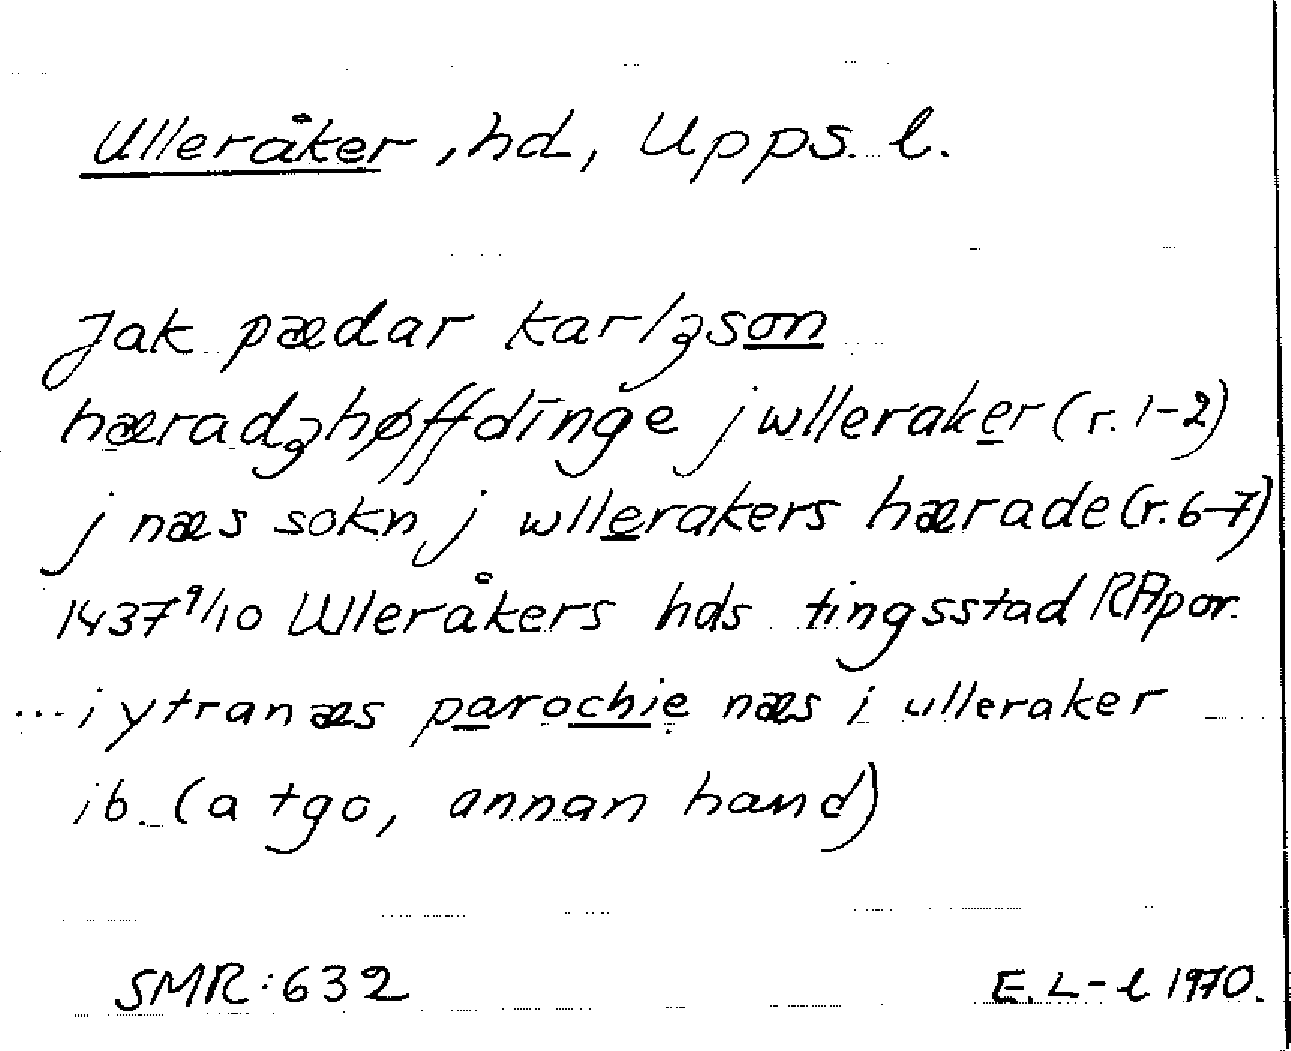 Ulleråker, hd, Upps. l.
Jak pædar karlʒson
hæradʒhøffdinge j wlleraker (r. 1-2)
j næs sokn j wllerakers hærade (r. 6-7)
1437 9/10 Ulleråkers hds tingsstad RApor.
... i ytranæs parochie næs i ulleraker
ib. (a tgo, annan hand)
SMR: 632 E. L-l 1970.